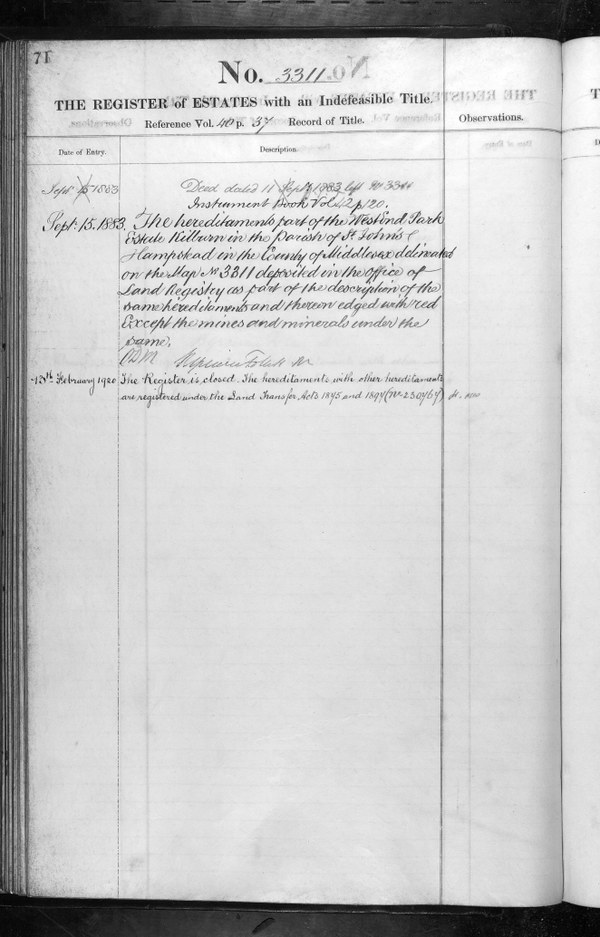 71
No. 3311.
THE REGISTER of ESTATES with an Indefeasible Title.
Reference Vol. 40 p. 37 Record of Title.
Observations.
Date of Entry.
Description.
Sept 15 1883
Deed dated 11 Sept 1883 left
Instrument Book Vol. 42 p 120.
Sept: 15. 1883.
The hereditaments part of the West End Park
Estate Kilburn in the Parish of St. John's
Hampstead in the County of Middlesex delineated
on the Map No 3311 deposited in the office of
Land Registry as part of the description of the
same hereditaments and thereon edged with red
Except the mines and minerals under the
same.
February 1920
The Register is closed. The hereditaments with other hereditaments
are registered under the Land Transfer Acts 1875 and 1897 (No 230467)